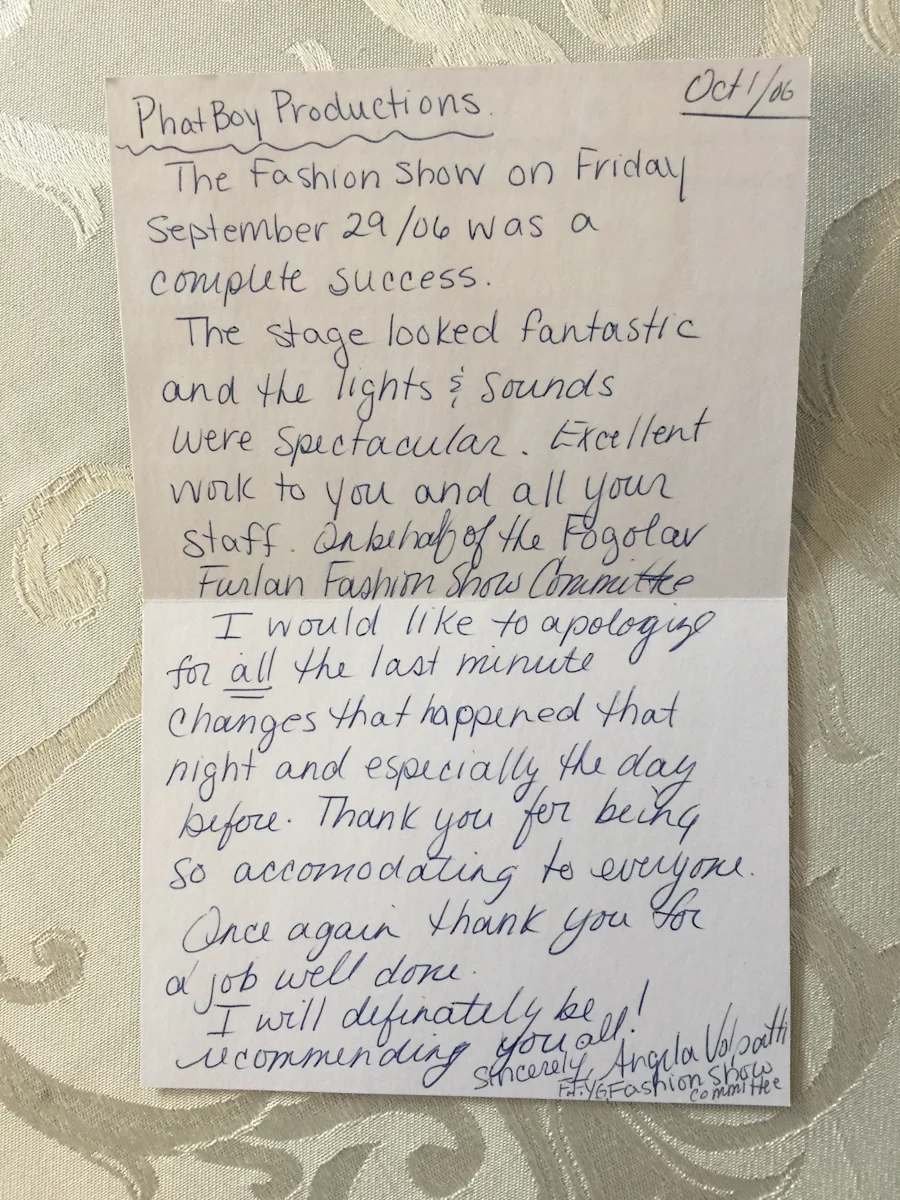 Oct 1/06
PhatBoy Productions.
The Fashion Show on Friday
September 29/06 was a
complete success.
The stage looked fantastic
and the lights & Sounds
were Spectacular. Excellent
work to you and all your
staff. On behalf of the Fogolar
Furlan Fashion Show Committee
I would like to apologize
for all the last minute
changes that happened that
night and especially the day
before. Thank you for being
so accomodating to everyone.
Once again thank you for
a job well done.
I will definately be
recommending you all!
Sincerely, Angela Volpatti
Fashion Show
committee